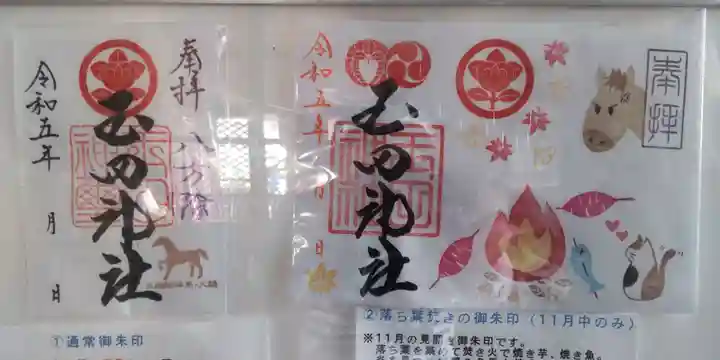 奉拝
八方除
玉田神社
令和五年 月 日
①通常御朱印
奉拝
玉田神社
令和五年 月 日
②落ち葉焚きの御朱印（11月中のみ）
※11月の見開き御朱印です。
落ち葉を集めて焚き火で焼き芋、焼き魚